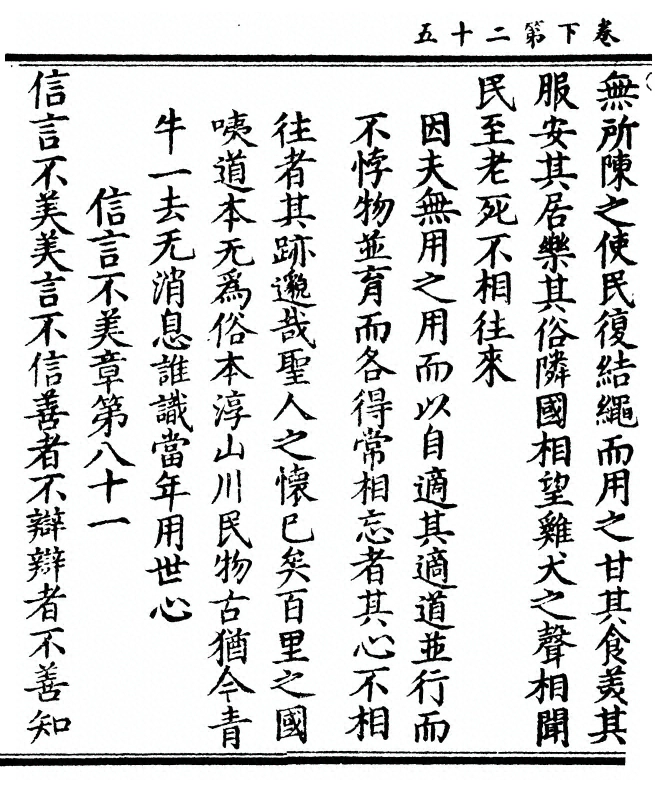 卷下第二十五
無所陳之使民復結繩而用之甘其食美其
服安其居樂其俗隣國相望雞犬之聲相聞
民至老死不相往來
因夫無用之用而以自適其適道並行而
不悖物並育而各得常相忘者其心不相
往者其跡邈哉聖人之懷已矣百里之國
咦道本无爲俗本淳山川民物古猶今青
牛一去无消息誰識當年用世心
信言不美章第八十一
信言不美美言不信善者不辯辯者不善知